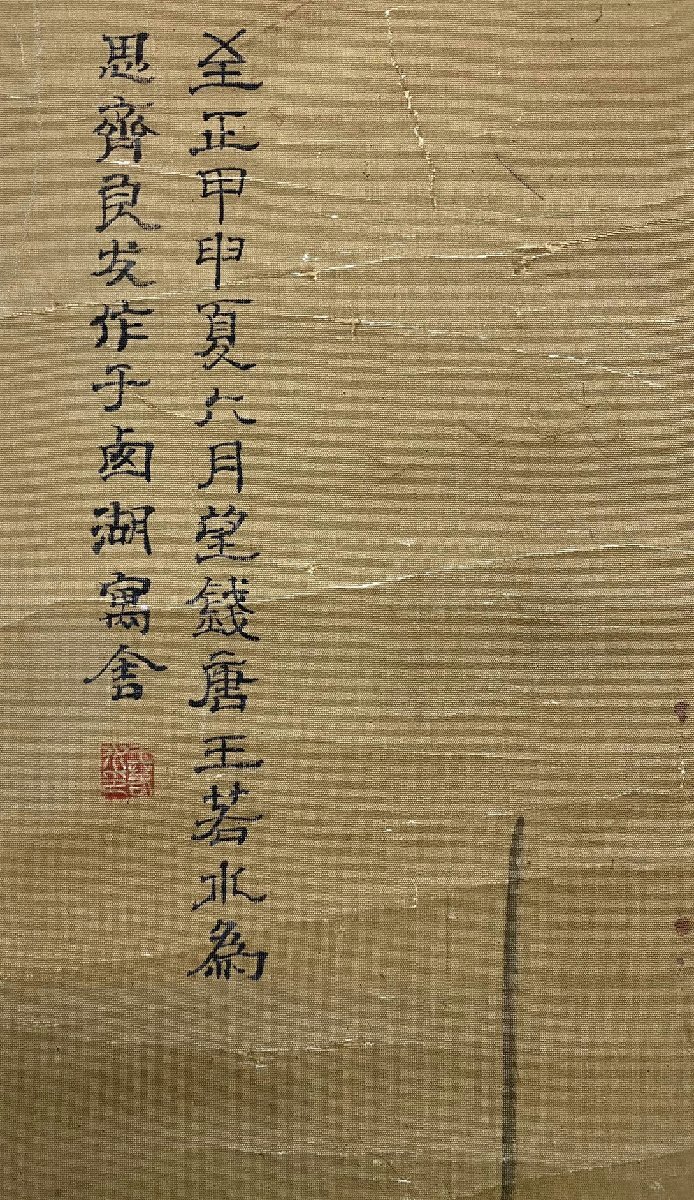 至正甲申夏六月望錢唐王若水為
思齊良友作于西湖寓舍